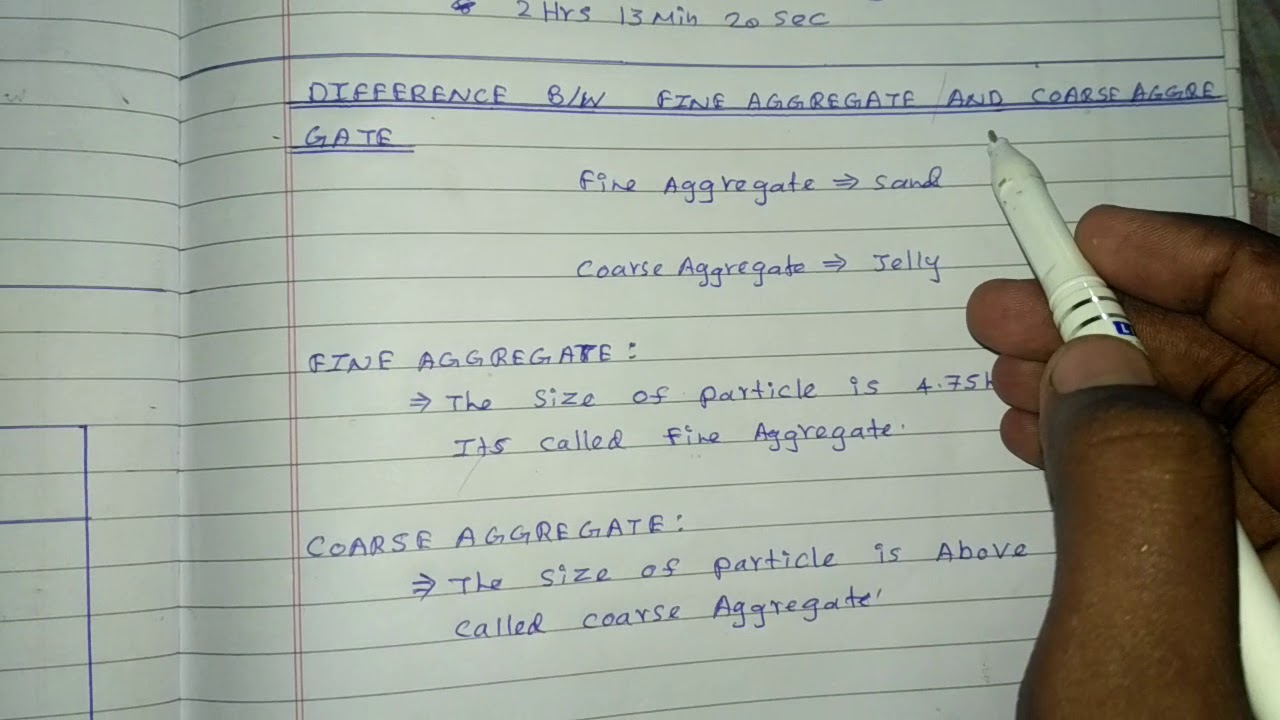 2 Hrs 13 Min 20 Sec
DIFFERENCE B/W FINE AGGREGATE AND COARSE AGGRE
GATE
Fine Aggregate ⇒ Sand
Coarse Aggregate ⇒ Jelly
FINE AGGREGATE:
⇒ The Size of particle is 4.75
Its called Fine Aggregate.
COARSE AGGREGATE:
⇒ The Size of particle is Above
called coarse Aggregate'